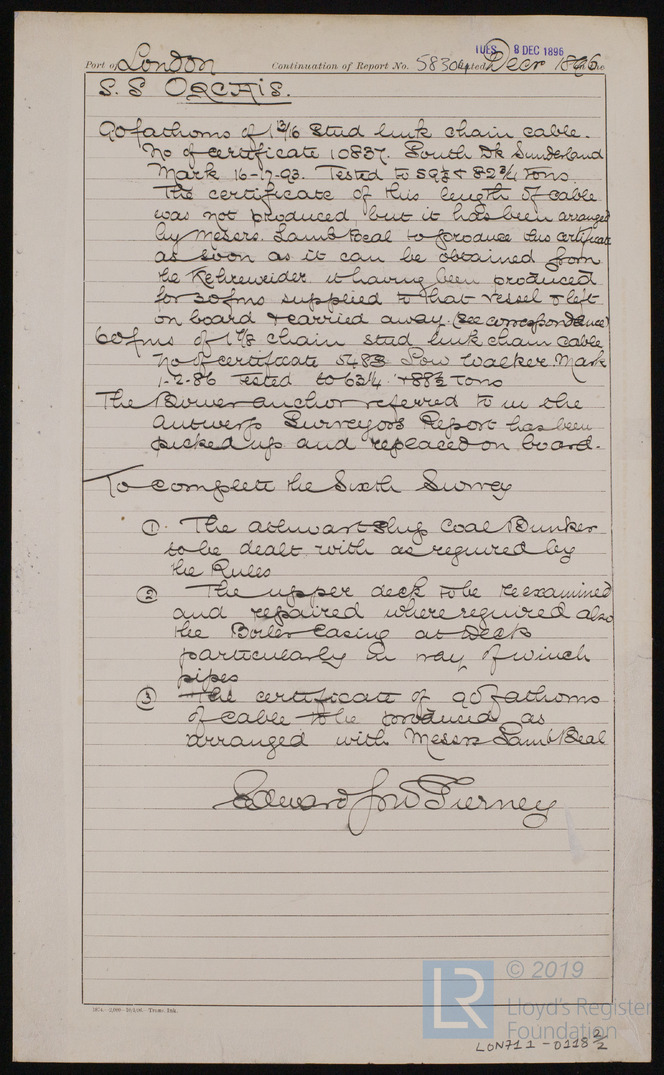 TUES 8 DEC 1896
Port of London Continuation of Report No. 58304 dated Decr 1896 on the
S.S ORCHIS.
90 fathoms of 1 13/16 Stud link chain cable.
No of certificate 10837. South Dk Sunderland
Mark 16-17-93. Tested to 59⅛ & 82¾ Tons.
The certificate of this length of cable
was not produced, but it has been arranged
by Messrs. Lamb Beal to produce this certificate
as soon as it can be obtained from
the it having been produced
for 30 fms supplied to that vessel & left
on board & carried away. (see correspondence)
60 fms of 1⅞ chain stud link chain cable
No of certificate 5483 Low Walker. Mark
1-2-86 Tested to 63¼ & 88½ Tons
The Bower anchor referred to in the
Antwerp Surveyors Report has been
picked up and replaced on board.
To complete the Sixth Survey
① The athwart ship Coal Bunker
to be dealt with as required by
the Rules
② The upper deck to be reexamined
and repaired where required also
the Boiler Casing at Deck
particularly in way of winch
pipes
③ The certificate of 90 fathoms
of cable to be produced as
arranged with Messrs Lamb Beal
Edward Tierney
Transc. Ink.
© 2019
LR
Lloyd's Register
Foundation
LON711-0118 2/2